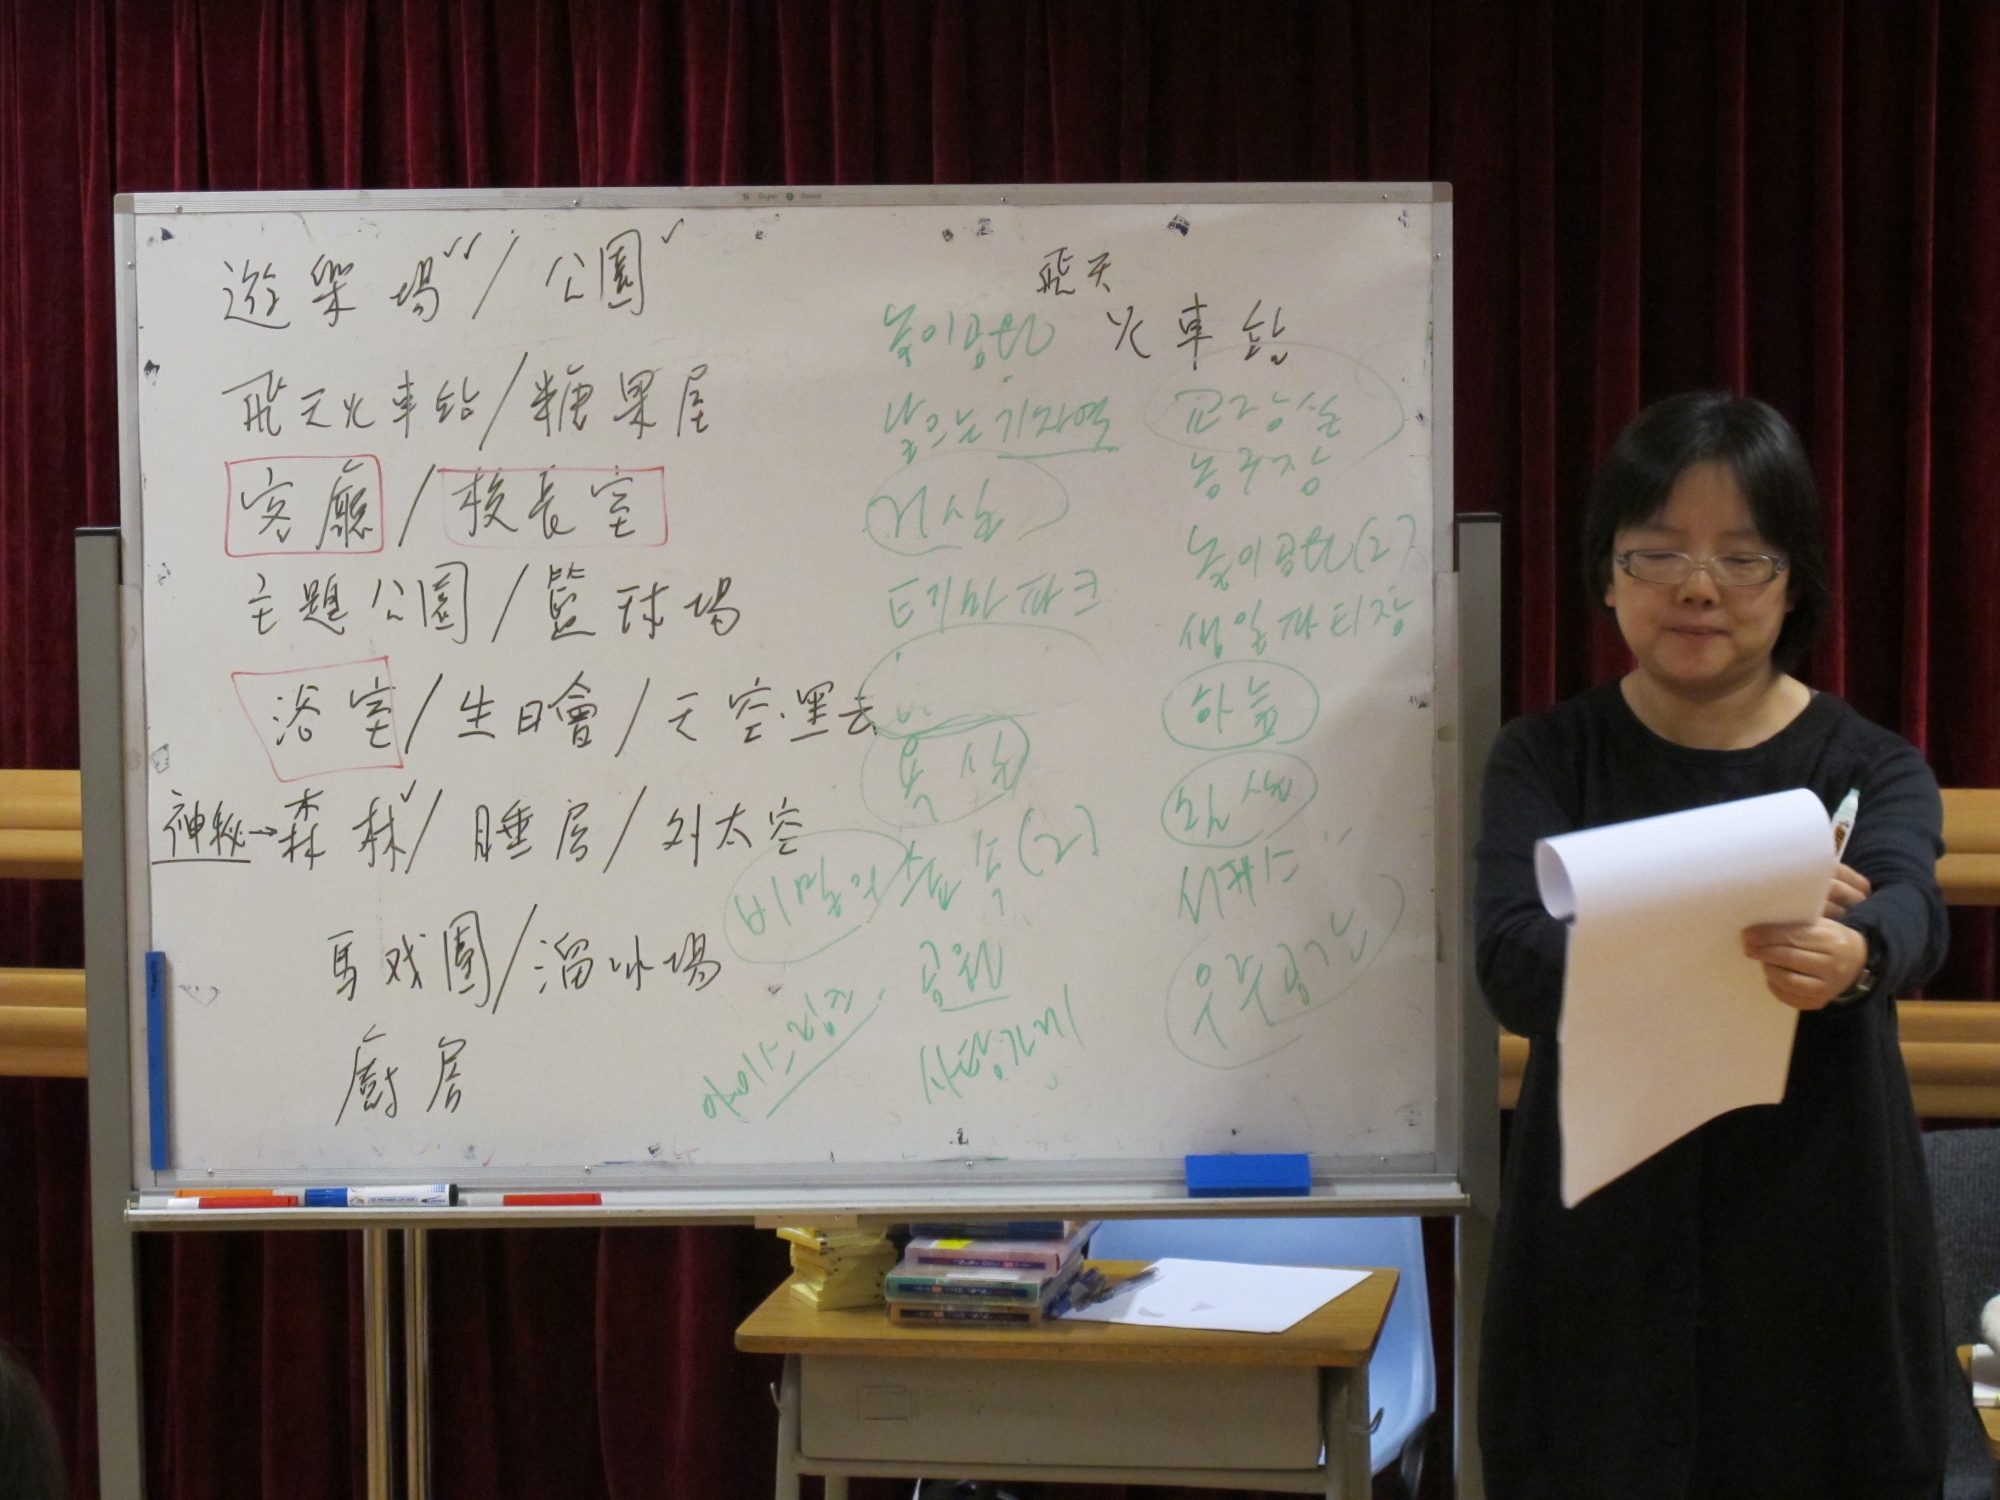 遊樂場✓✓/公園✓
飛天火車站/糖果屋
客廳/校長室
主題公園/籃球場
浴室/生日會/天空.黑云
神秘→森林✓/睡房/外太空
馬戏團/溜冰場
廚房
飛天
火車站
놀이공원
날으는 기차역
거실
테마파크
욕실
비밀의 숲속(2)
공원
사탕가게
아이스링크
교장실
농구장
놀이공원(2)
생일파티장
하늘
침실
서커스
우주공간